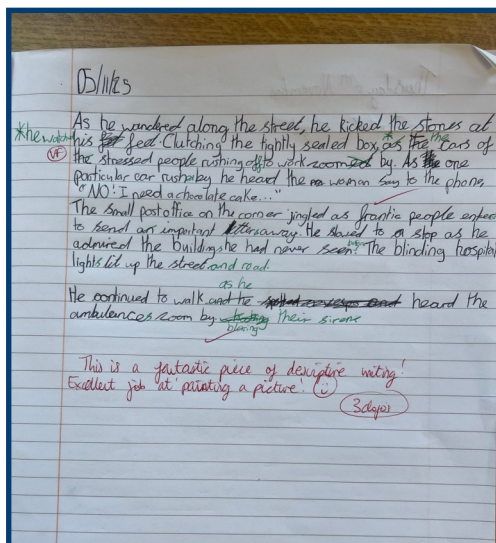 05/11/25
As he wandered along the street, he kicked the stones at
*he watched his feet. Clutching the tightly sealed box, as the the cars of
VF
the stressed people rushing off to work zoomed by. As one
particular car rushed by he heard the woman say to the phone,
"NO! I need a chocolate cake..."
The small post office on the corner jingled as frantic people entered
to send an important letters away. He slowed to a stop as he
admired the buildings he had never seen before. The blinding hospital
lights lit up the street and road.
as he
He continued to walk and he heard the
ambulances zoom by their sirens
blaring
This is a fantastic piece of descriptive writing!
Excellent job at painting a picture!
3 dojos